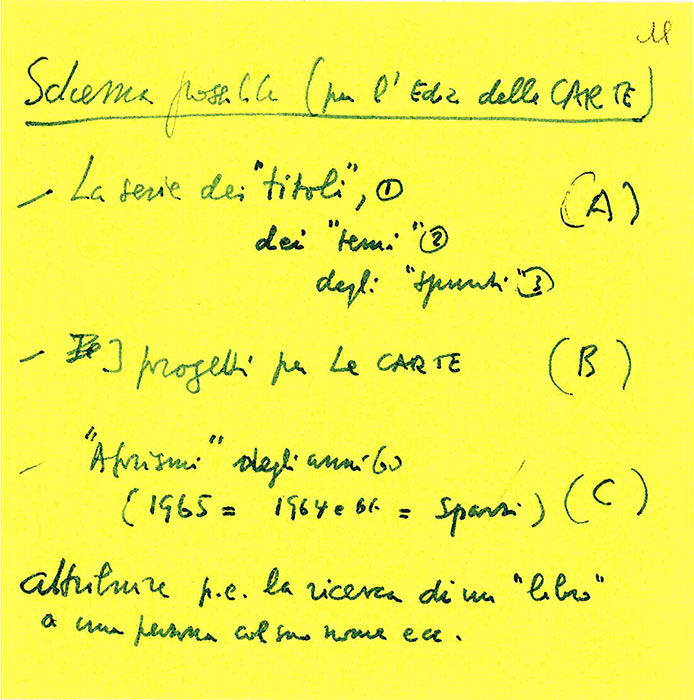 Schema possibile (per l'Ediz delle CARTE)
– La serie dei "titoli", ① (A)
dei "temi" ②
degli "spunti" ③
– I progetti per Le CARTE (B)
– "Aforismi" degli anni 60
(1965 = 1964 e 66 = sparsi) (C)
attribuire p.e. la ricerca di un "libro"
a una persona col suo nome ecc.